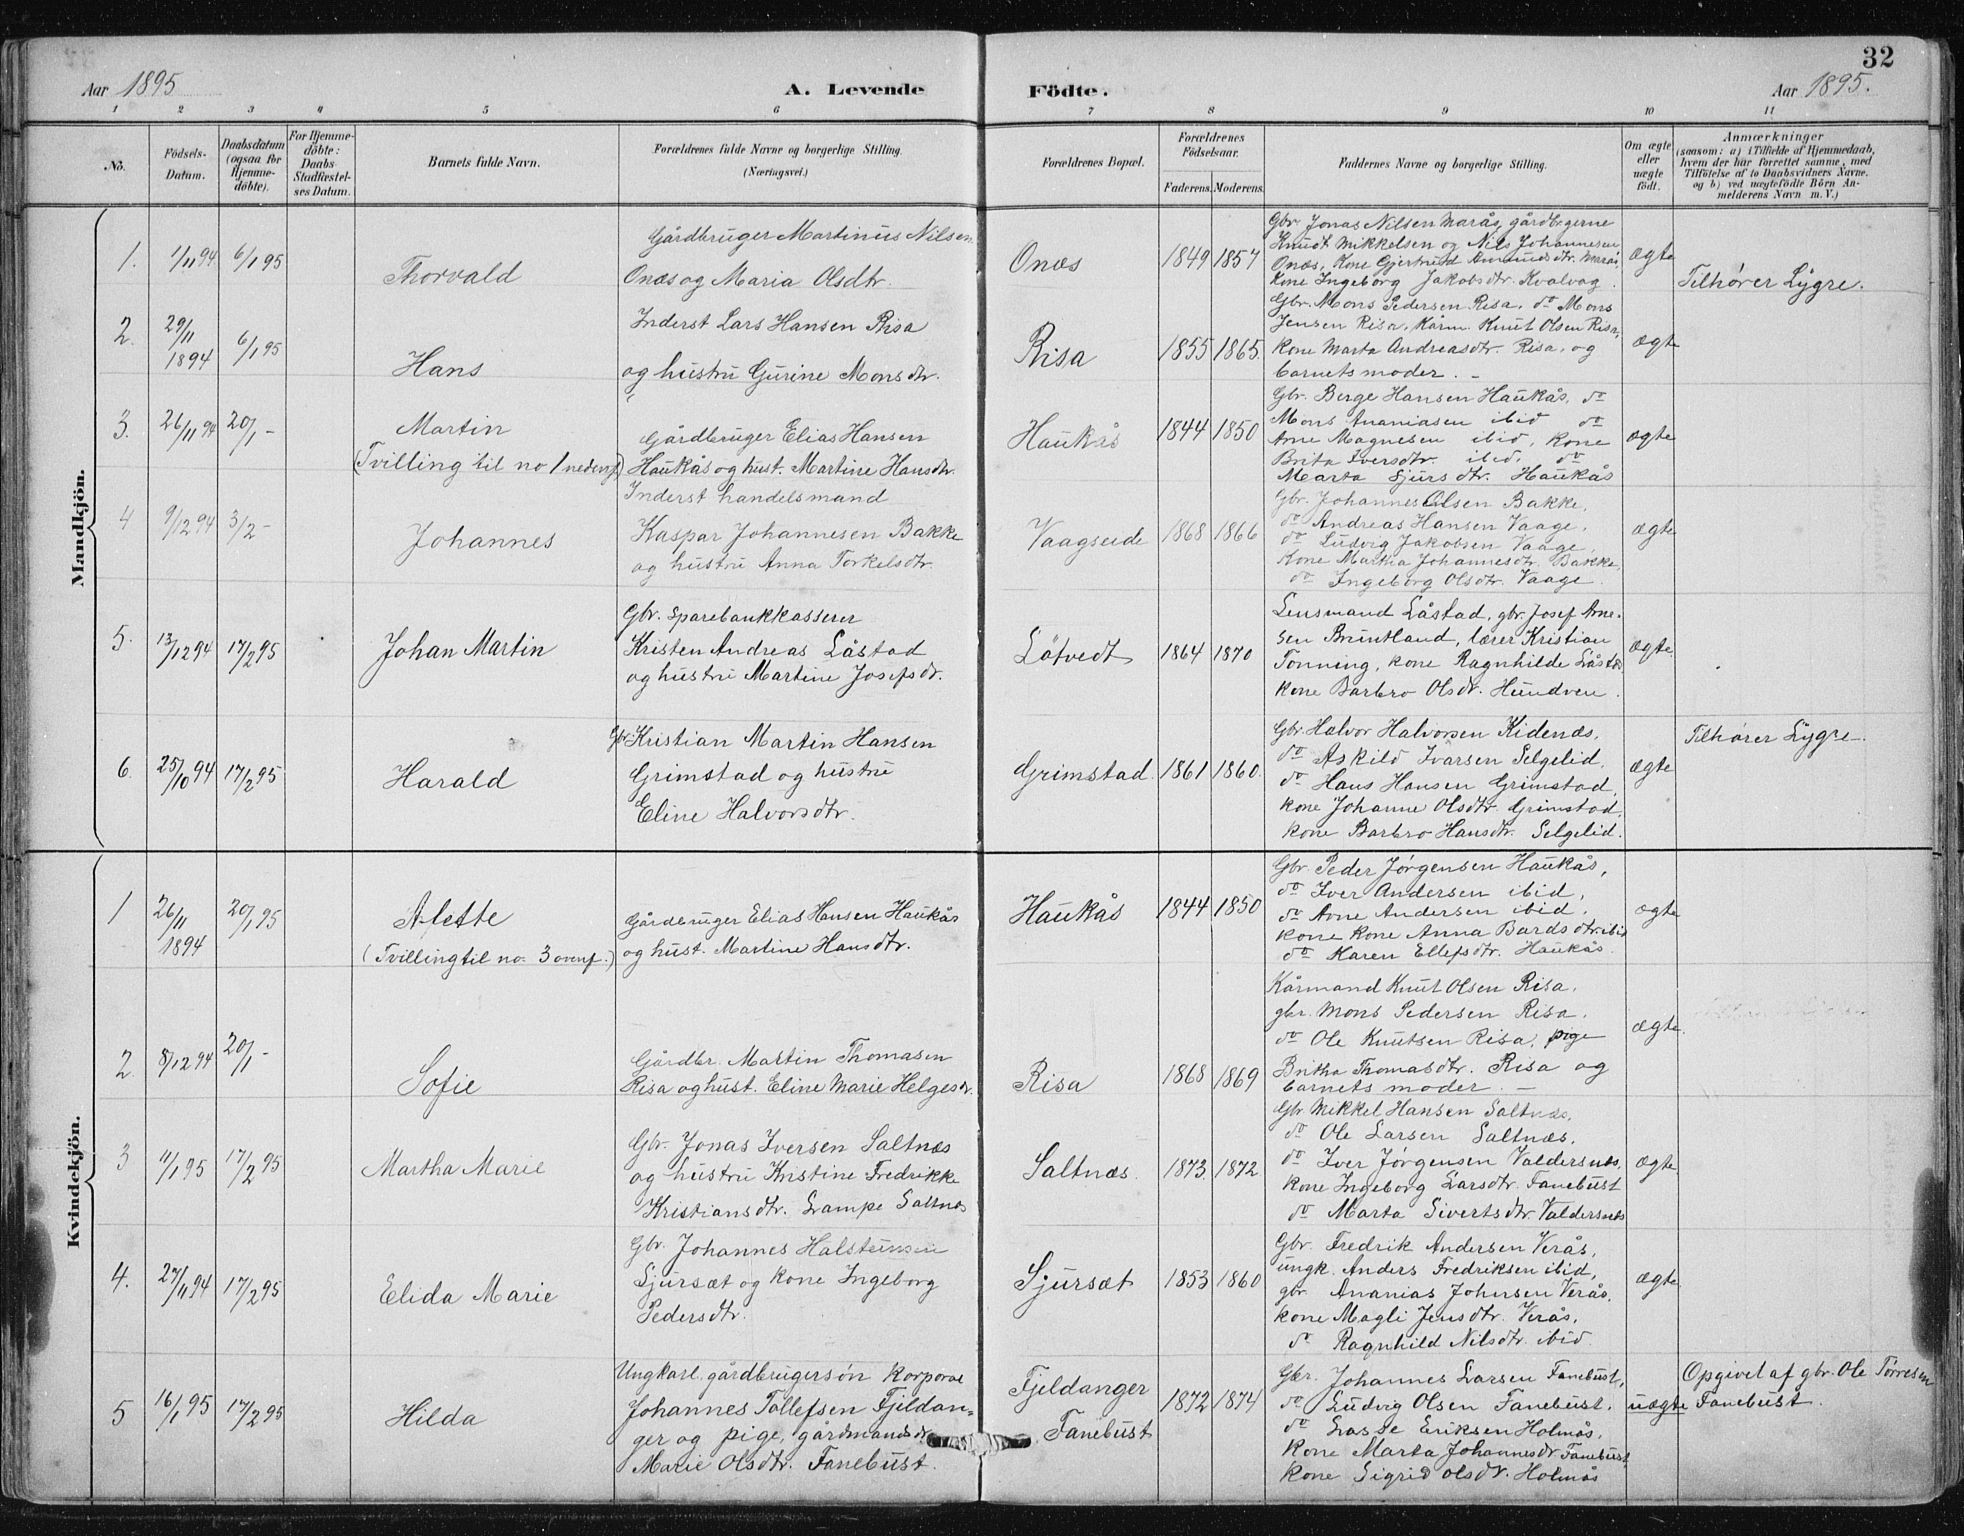 32
Aar 1895
A. Levende
Födte.
Aar 1895.
1 2 3 4 5 6 7 8 9 10 11
No.
Födsels-
Datum.
Daabsdatum
(ogsaa for
Hjemme-
döbte).
For Hjemme-
döbte:
Daabs-
Stadfæstel-
ses Datum.
Barnets fulde Navn.
Forældrenes fulde Navne og borgerlige Stilling.
(Næringsvei.)
Forældrenes Bopæl.
Forældrenes
Födselsaar.
Faderens. Moderens.
Faddernes Navne og borgerlige Stilling.
Om ægte
eller
uægte
födt.
Anmærkninger
(saasom: a) i Tilfælde af Hjemmedaab,
hvem der har forrettet samme, med
Tilföielse af to Daabsvidners Navne,
og b) ved uægtefödte Börn An-
melderens Navn m. V.)
Mandkjön.
1.
1/11 94
6/1 95
Thorvald
Gårdbruger Martinus Nilsen
Onæs og Maria Olsdtr.
Onæs
1849
1857
Gbr. Jonas Nilsen Marås, gårdbrgerne
Knudt Mikkelsen og Nils Johannesen
Onæs, Kone Gjertrud Amundsdtr. Marås,
Kone Ingeborg Jakobsdtr. Kvalvag.
ægte
Tilhører Lygre.
2.
29/11
1894
6/1 95
Hans
Inderst Lars Hansen Risa
og hustru Gurine Monsdtr.
Risa
1855
1865.
Gbr. Mons Pedersen Risa, do Mons
Jensen Risa, Kårm. Knut Olsen Risa,
Kone Marta Andreasdtr. Risa, og
barnets moder. -
ægte
3.
26/11 94
20/1 -
Martin
(Tvilling til no 1 nedenf.)
Gårdbruger Elias Hansen
Haukås og hust. Martine Hansdtr.
Haukås
1844
1850
Gbr. Berge Hansen Haukås, do
Mons Ananiasen ibid do
Arne Magnesen ibid, kone
Brita Iversdtr. ibid, do
Marta Sjursdtr. Haukås
ægte
4
9/12 94
3/2 -
Johannes
Inderst handelsmand
Kaspar Johannesen Bakke
og hustru Anna Torkelsdtr.
Vaagseide
1868
1866
Gbr. Johannes Olsen Bakke,
do Andreas Hansen Vaage,
do Ludvig Jakobsen Vaage,
Kone Martha Johannesdtr. Bakke,
do Ingeborg Olsdtr. Vaage.
ægte
5.
13/12 94
17/2 95
Johan Martin
Gbr. Sparebankkasserer
Kristen Andreas Låstad
og hustru Martine Josefsdr.
Løtvedt
1864
1870
Lensmand Låstad, gbr. Josef Arne-
sen Bruntland, lærer Kristian
Tonning, kone Ragnhilde Låstad
kone Barbro Olsdr. Hundven.
ægte.
6.
25/10 94
17/2 95
Harald
Gbr. Kristian Martin Hansen
Grimstad og hustru
Eline Halvorsdtr.
Grimstad.
1861
1860.
Gbr. Halvor Halvorsen Kidenæs,
do Askild Ivarsen Selgelid,
do Hans Hansen Grimstad,
kone Johanne Olsdtr. Grimstad,
kone Barbro Hansdtr. Selgelid.
ægte
Tilhører Lygre.
Kvindekjön.
1
26/11
1894
20/1 95
Alette
(Tvilling til no. 3 ovenf.)
Gårdbruger Elias Hansen Haukås
og hust. Martine Hansdtr.
Haukås
1844
1850
Gbr. Peder Jørgensen Haukås,
do Iver Andersen ibid,
do Arne Andersen ibid,
kone kone Anna Bardsdtr. ibid
do Karen Ellefsdtr. Haukås.
ægte
2
8/12 94
20/1 -
Sofie
Gårdbr. Martin Thomasen
Risa og hust. Eline Marie Helgesdr.
Risa
1868
1869
Kårmand Knut Olsen Risa,
gbr. Mons Pedersen Risa,
do Ole Knutsen Risa, pige
Britha Thomasdtr. Risa og
barnets moder. -
ægte.
3
11/1 95
17/2 95
Martha Marie
Gbr. Jonas Iversen Saltnæs
og hustru Kristine Fredrikke
Kristiansdtr. Lampe Saltnæs
Saltnæs.
1873.
1872
Gbr. Mikkel Hansen Saltnæs,
do Ole Larsen Saltnæs,
do Iver Jørgensen Valdersnæs,
kone Ingeborg Larsdtr. Fanebust
do Marta Sivertsdtr. Valdersnæs
ægte
4.
27/11 94
17/2 95
Elida Marie
Gbr. Johannes Halstensen
Sjursæt og kone Ingeborg
Pedersdtr.
Sjursæt
1853
1860
Gbr. Fredrik Andersen Verås,
ungk. Anders Fredriksen ibid,
gbr. Ananias Johnsen Verås,
kone Magli Jensdtr. Verås,
do Ragnhild Nilsdtr. ibid.
ægte
5
16/1 95
17/2 95
Hilda
Ungkarl, gårdbrugersøn Korporal
Johannes Tollefsen Fjeldan-
ger og pige, gårdmandsdr.
Marie Olsdtr. Fanebust.
Fjeldanger
Fanebust
1872
1874
Gbr. Johannes Larsen Fanebust,
do Ludvig Olsen Fanebust,
do Lasse Eriksen Holmås,
kone Marta Johannesdr. Fanebust,
kone Sigrid Olsdr. Holmås
uægte
Opgivet af gbr. Ole Tørresen
Fanebust.